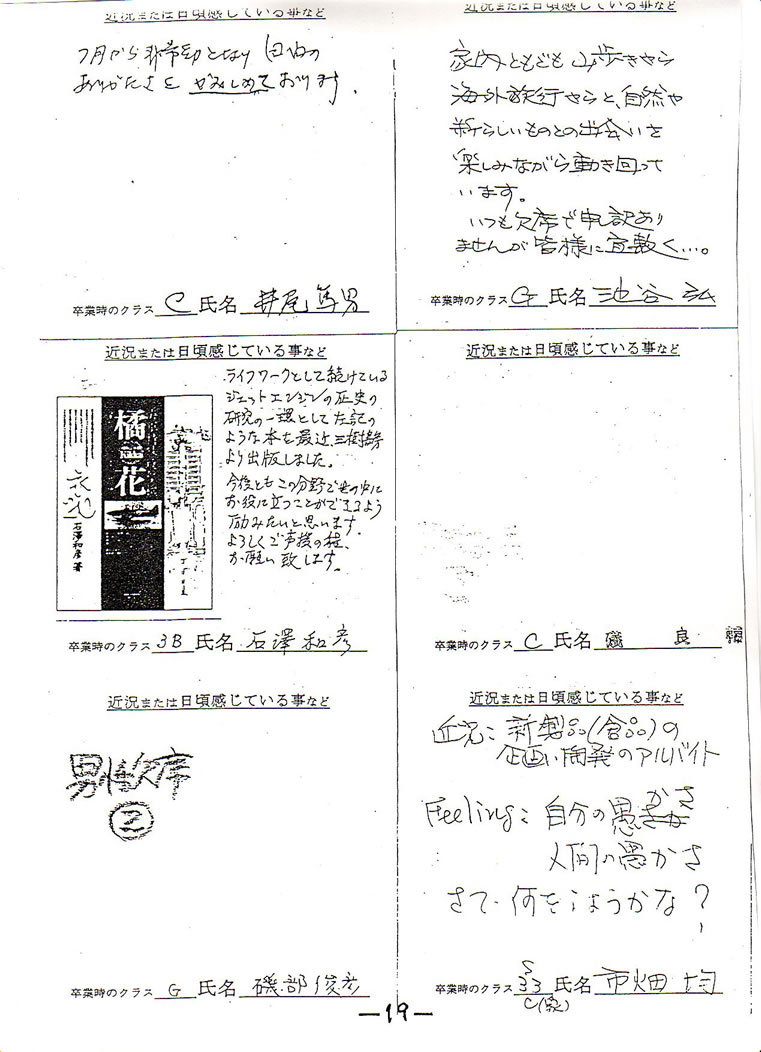 近況または日頃感じている事など
7月から非常勤となり自由の
ありがたさをかみしめております.
卒業時のクラス C 氏名 井尾 篤男
近況または日頃感じている事など
家内ともども山歩きやら
海外旅行やらと、自然や
新らしいものとの出会いを
楽しみながら動き回って
います。
いつも欠席で申訳あり
ませんが皆様に宜敷く…。
卒業時のクラス G 氏名 池谷 弘
近況または日頃感じている事など
橘花
石澤和彦 著
ライフワークとして続けている
ジェットエンジンの歴史の
研究の一環として左記の
ような本を最近三樹書房
より出版しました。
今後ともこの分野で世の中に
お役に立つことができるよう
励みたいと思います。
よろしくご声援の程、
お願い致します。
卒業時のクラス 3B 氏名 石澤和彦
近況または日頃感じている事など
卒業時のクラス C 氏名 磯 良
近況または日頃感じている事など
男性欠席
②
卒業時のクラス G 氏名 磯部俊彦
近況または日頃感じている事など
近況: 新製品(食品)の
企画い開発のアルバイト
Feeling: 自分の愚かさ
人間の愚かさ
さて、何をしようかな?
卒業時のクラス S33 C(家) 氏名 市畑 均
—19—